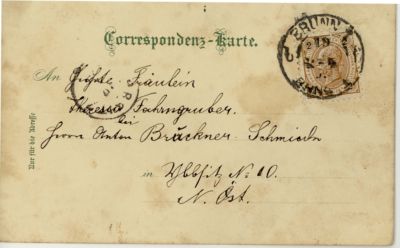 BRÜNN
Correspondenz-Karte.
An Fräulein
Theresia Fahrngruber.
bei
Herrn Anton Brückner-Schmiedn
in Ybbsitz No 10.
N. Öst.
Nur für die Adresse